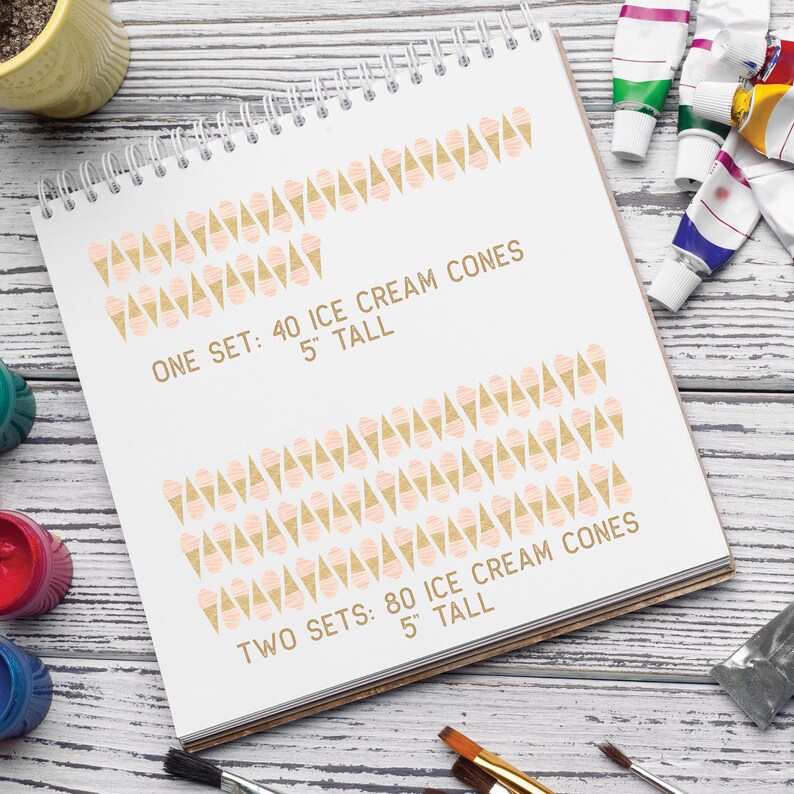 ONE SET: 40 ICE CREAM CONES
5" TALL
TWO SETS: 80 ICE CREAM CONES
5" TALL